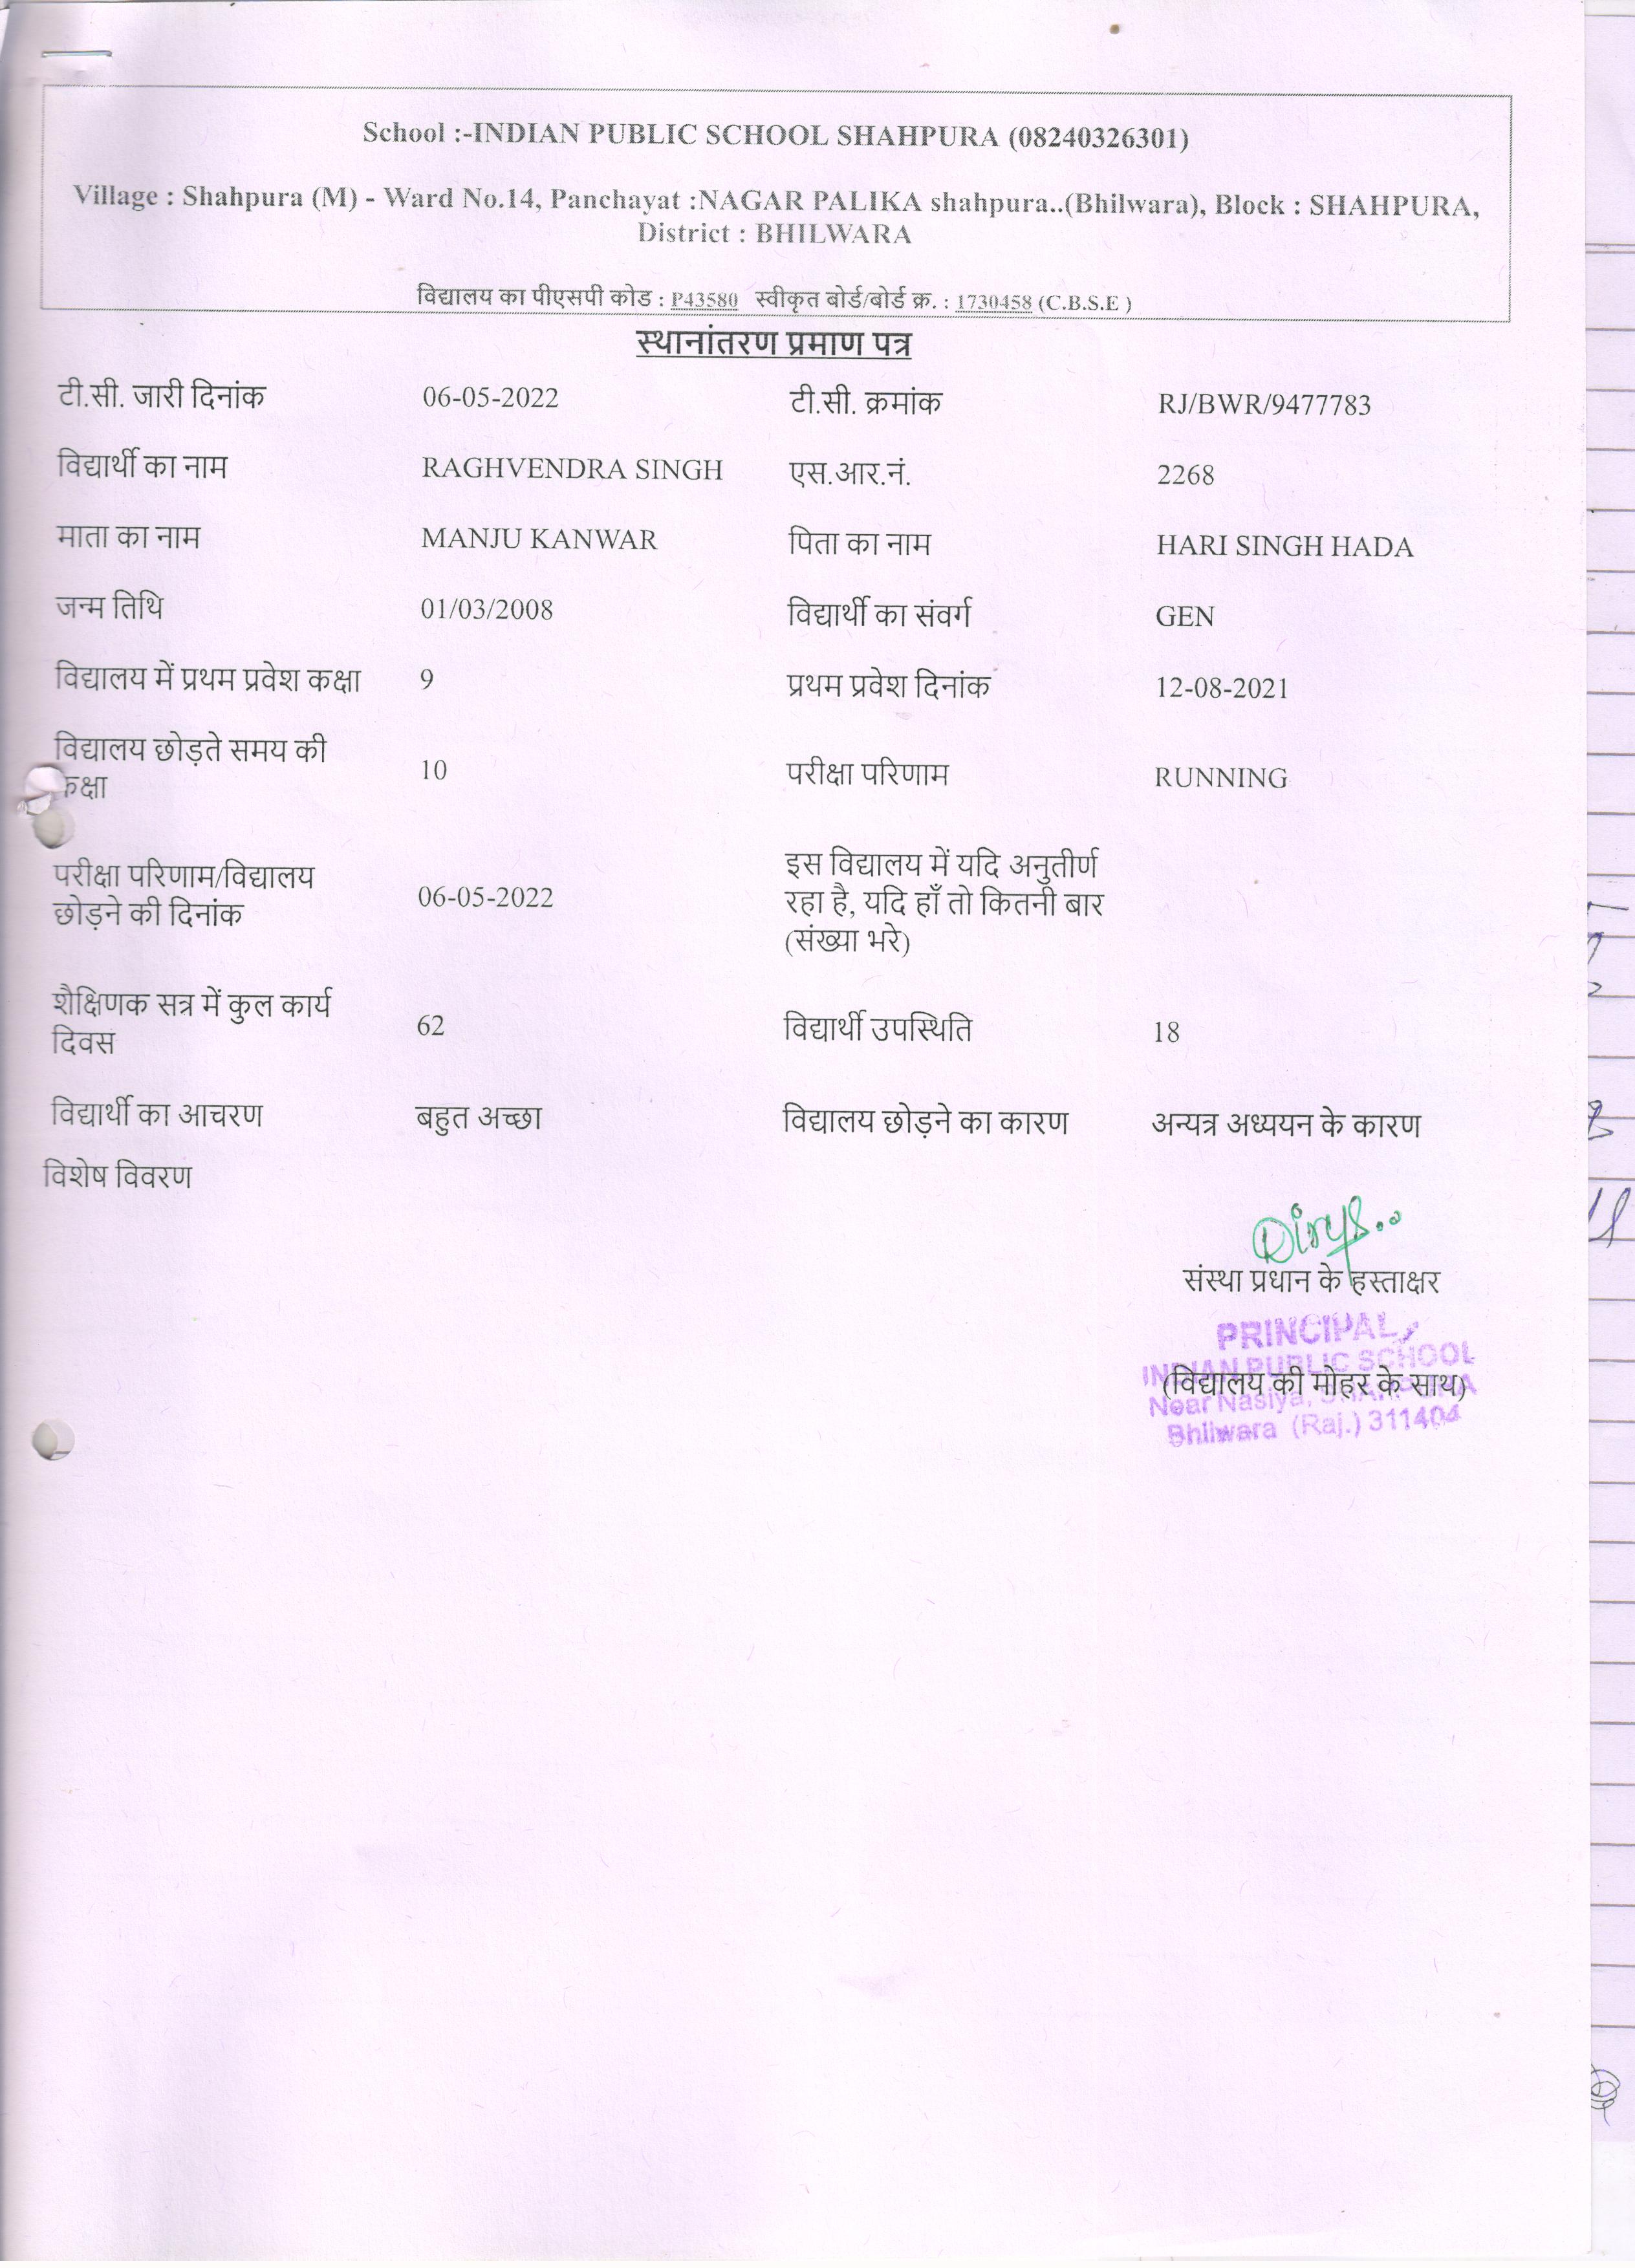 School :-INDIAN PUBLIC SCHOOL SHAHPURA (08240326301)
Village : Shahpura (M) - Ward No.14, Panchayat :NAGAR PALIKA shahpura..(Bhilwara), Block : SHAHPURA,
District : BHILWARA
विद्यालय का पीएसपी कोड : P43580 स्वीकृत बोर्ड/बोर्ड क्र. : 1730458 (C.B.S.E )
स्थानांतरण प्रमाण पत्र
टी.सी. जारी दिनांक 06-05-2022 टी.सी. क्रमांक RJ/BWR/9477783
विद्यार्थी का नाम RAGHVENDRA SINGH एस.आर.नं. 2268
माता का नाम MANJU KANWAR पिता का नाम HARI SINGH HADA
जन्म तिथि 01/03/2008 विद्यार्थी का संवर्ग GEN
विद्यालय में प्रथम प्रवेश कक्षा 9 प्रथम प्रवेश दिनांक 12-08-2021
विद्यालय छोड़ते समय की
कक्षा 10 परीक्षा परिणाम RUNNING
परीक्षा परिणाम/विद्यालय
छोड़ने की दिनांक 06-05-2022
इस विद्यालय में यदि अनुतीर्ण
रहा है, यदि हाँ तो कितनी बार
(संख्या भरे)
शैक्षिणक सत्र में कुल कार्य
दिवस 62 विद्यार्थी उपस्थिति 18
विद्यार्थी का आचरण बहुत अच्छा विद्यालय छोड़ने का कारण अन्यत्र अध्ययन के कारण
विशेष विवरण
संस्था प्रधान के हस्ताक्षर
PRINCIPAL,
INDIAN PUBLIC SCHOOL
(विद्यालय की मोहर के साथ)
Near Nasiya, SHAHPURA
Bhilwara (Raj.) 311404